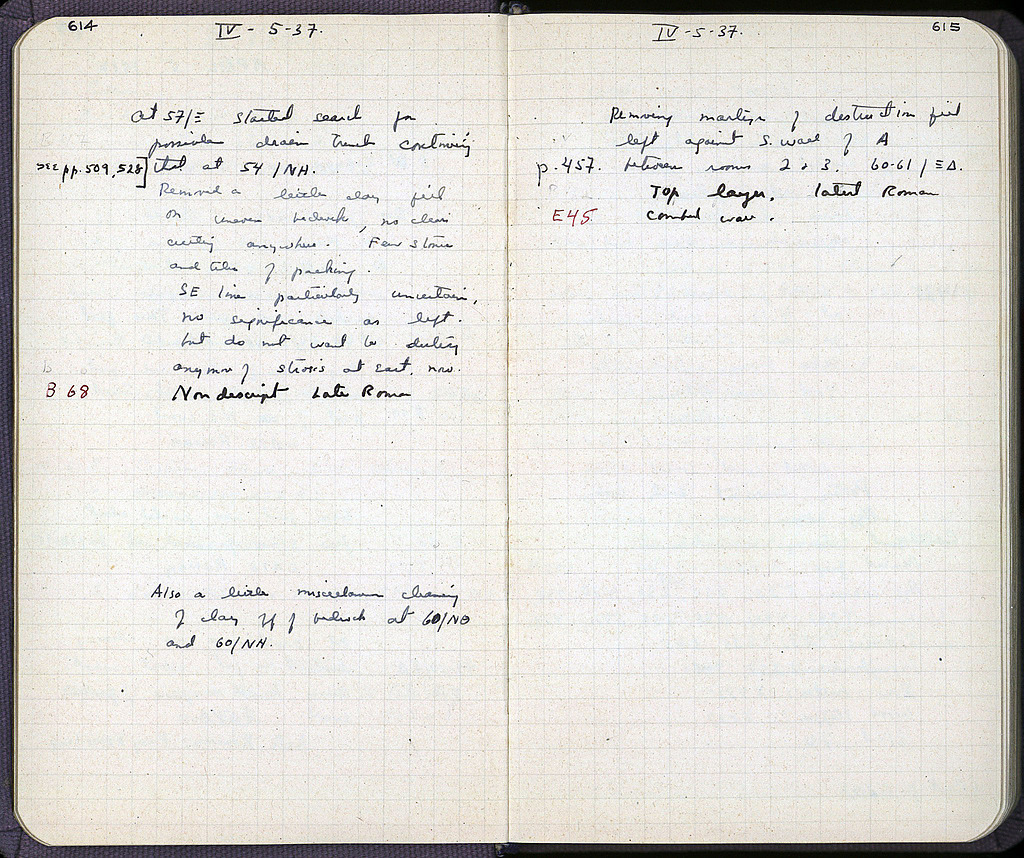 614
IV - 5-37.
At 57/Ξ started search for
possible drain trench continuing
SEE pp. 509, 528] that at 54/ΝΗ.
Removed a little clay fill
on uneven bedrock, no clear
cutting anywhere. Few stones
and tiles of packing.
SE line particularly uncertain,
no significance as left.
but do not want to destroy
any more of stroses at East, now.
B 68 Nondescript Late Roman
Also a little miscellaneous cleaning
of clay off of bedrock at 60/ΝΘ
and 60/ΝΗ.
615
IV - 5-37.
Removing martyr of destruction fill
left against S. wall of A
p. 457. between rooms 2 & 3. 60-61/ΞΔ.
Top layer. latest Roman
E45 combed ware.